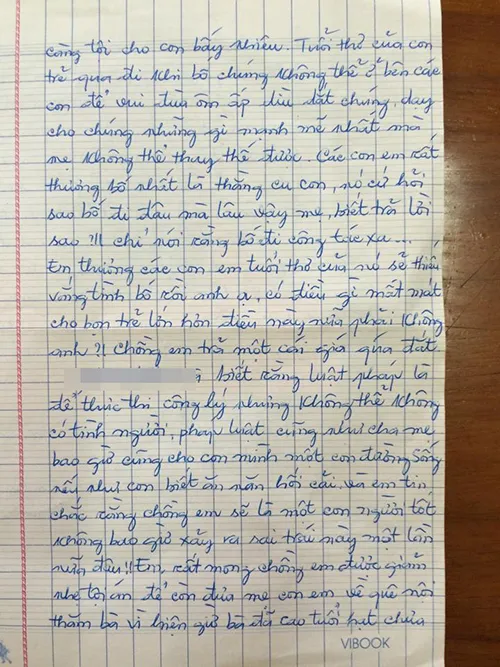 càng tội cho con bấy nhiêu. Tuổi thơ của con
trẻ qua đi khi bố chúng không thể ở bên các
con để vui đùa ôm ấp dìu dắt chúng, dạy
cho chúng những gì mạnh mẽ nhất mà
mẹ không thể thay thế được. Các con em rất
thương bố nhất là thằng cu con, nó cứ hỏi
sao bố đi đâu mà lâu vậy mẹ, biết trả lời
sao ?!! chỉ nói rằng bố đi công tác xa...
Em thương các con em tuổi thơ của nó sẽ thiếu
vắng tình bố rồi anh ạ, có điều gì mất mát
cho bọn trẻ lớn hơn điều này nữa phải không
anh ?! chồng em trả một cái giá quá đắt.
biết rằng luật pháp là
để thực thi công lý nhưng không thể không
có tình người, pháp luật cũng như cha mẹ
bao giờ cũng cho con mình một con đường sống
nếu như con biết ăn năn hối cải, và em tin
chắc rằng chồng em sẽ là một con người tốt
không bao giờ xảy ra sai trái này một lần
nữa đâu!! Em, rất mong chồng em được giảm
nhẹ tội án để còn đưa mẹ con em về quê nội
thăm bà vì hiện giờ bà đã cao tuổi
VIBOOK